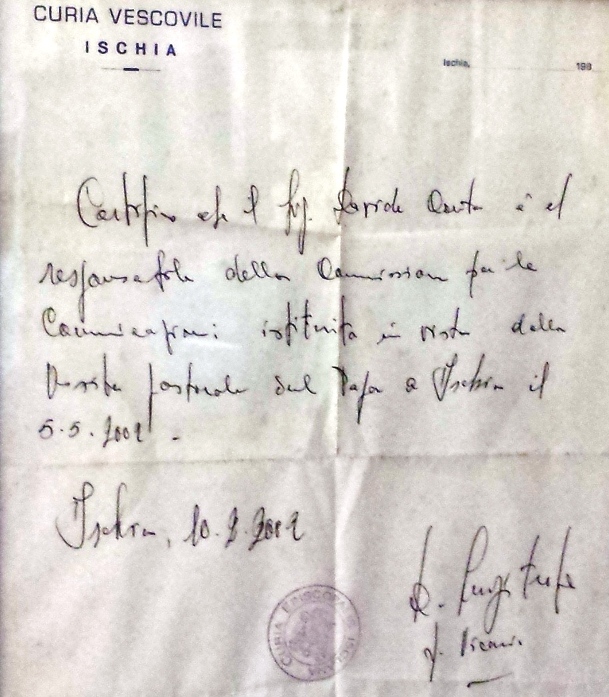 CURIA VESCOVILE
ISCHIA
Ischia, 198
Certifico che il Sig. Davide Conte è il
responsabile della Commissione per le
Comunicazioni istituita in vista della
Visita pastorale del Papa a Ischia il
5.5.2002.
Ischia, 10.2.2002
CURIA EPISCOPALIS